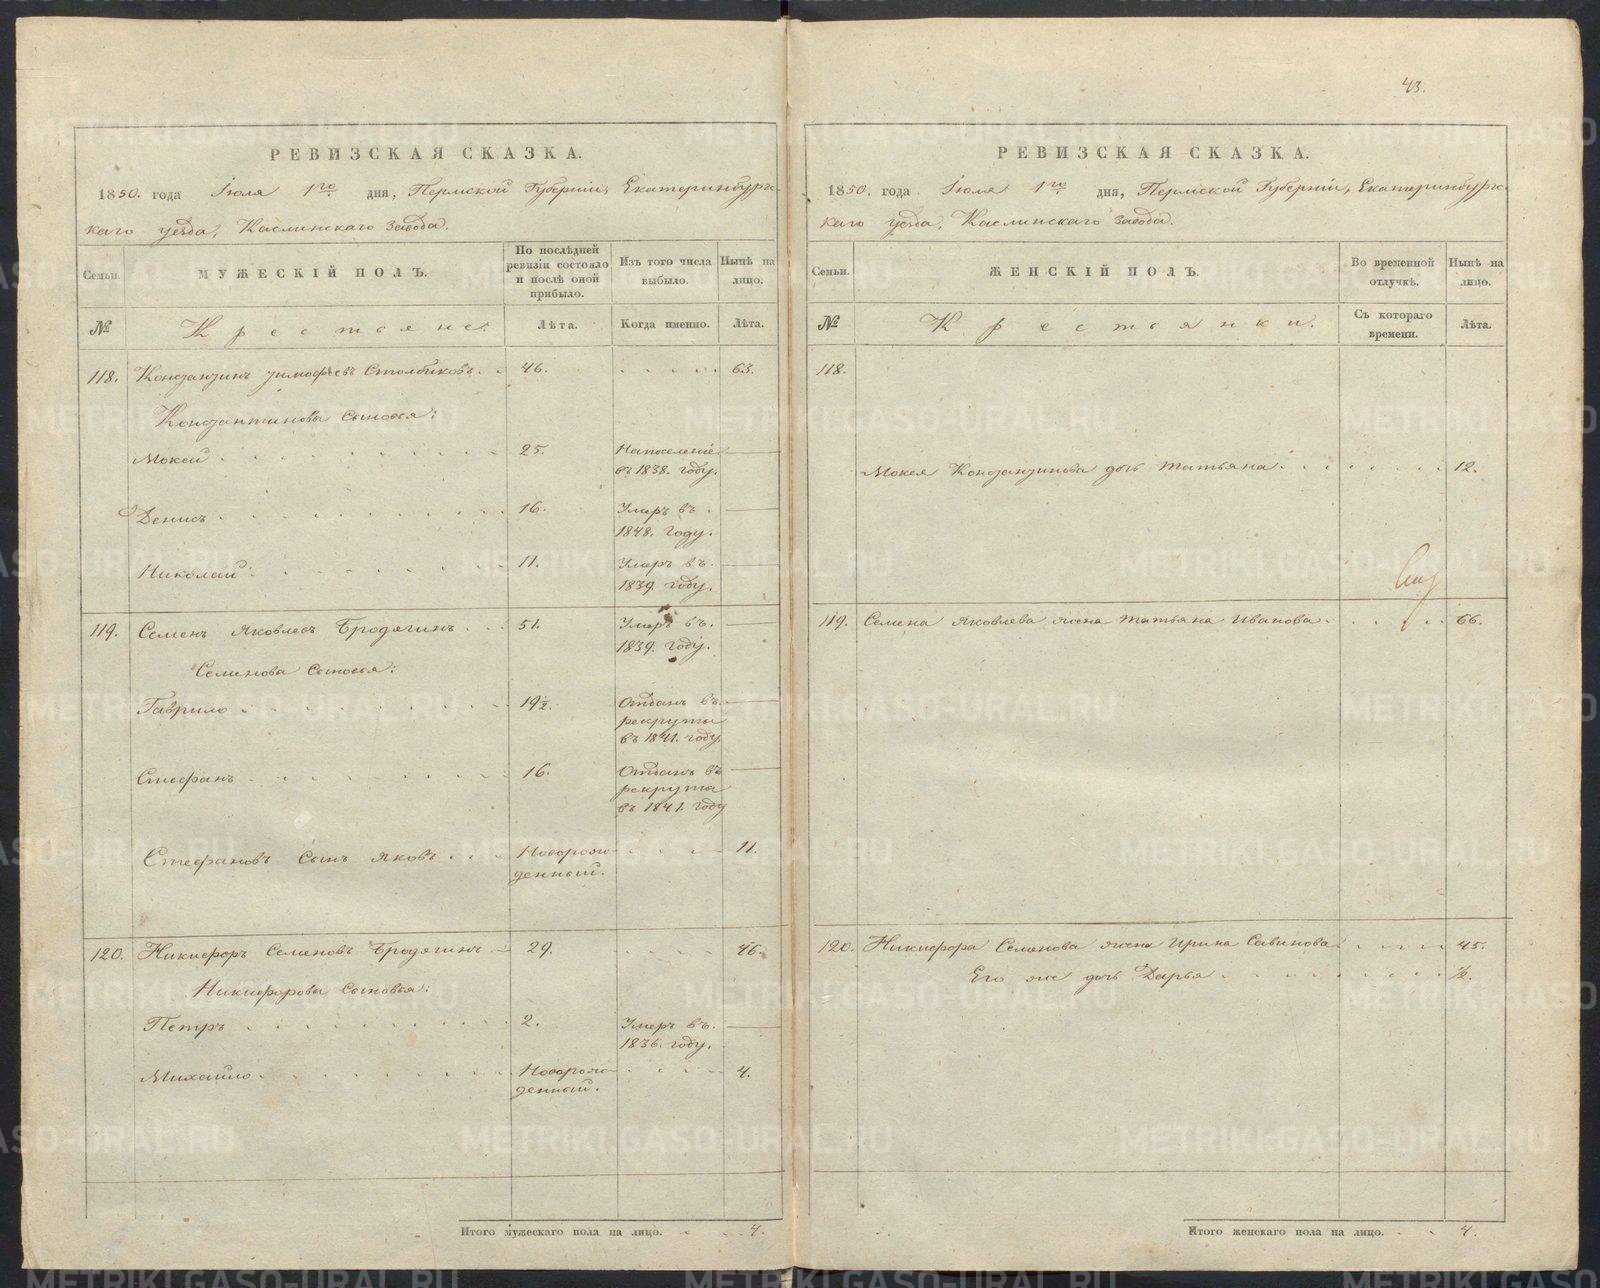 РЕВИЗСКАЯ СКАЗКА.
1850. года Іюля 1го дня, Пермской Губерніи, Екатеринбургс-
каго уезда, Каслинскаго завода.
Семьи. МУЖЕСКІЙ ПОЛЪ. По послѣдней ревизіи состояло и послѣ оной прибыло. Изъ того числа выбыло. Нынѣ на лицо.
№ Крестьяне: Лѣта. Когда именно. Лѣта.
118. Константинъ Тимофѣевъ Столбиковъ. 46. 63.
Константиновы сыновья:
Мокей 25. На поселеніе
въ 1838. году.
Денисъ 16. Умеръ въ
1848. году.
Николай 11. Умеръ въ
1839. году.
119. Семенъ Яковлевъ Бродягинъ 51. Умеръ въ
1839. году.
Семенова сыновья:
Гаврило 19½. Отданъ въ
рекруты
въ 1841. году.
Стефанъ 16. Отданъ въ
рекруты
въ 1841. году
Стефановъ сынъ Яковъ Новорож- 11.
денный.
120. Никифоръ Семеновъ Бродягинъ 29. 46.
Никифорова сыновья:
Петръ 2. Умеръ въ
1836. году.
Михайло Новорож- 4.
денный.
Итого мужескаго пола на лицо. 4.
43.
РЕВИЗСКАЯ СКАЗКА.
1850. года Іюля 1го дня, Пермской Губерніи, Екатеринбургс-
каго уезда, Каслинскаго завода.
Семьи. ЖЕНСКІЙ ПОЛЪ. Во временной отлучкѣ. Нынѣ на лицо.
№ Крестьянки. Съ котораго времени. Лѣта.
118.
Мокея Константинова дочь Татьяна 12.
119. Семена Яковлева жена Татьяна Иванова 66.
120. Никифора Семенова жена Ирина Савинова 45.
Его же дочь Дарья ½.
Итого женскаго пола на лицо. 4.
METRIKI.GASO-URAL.RU